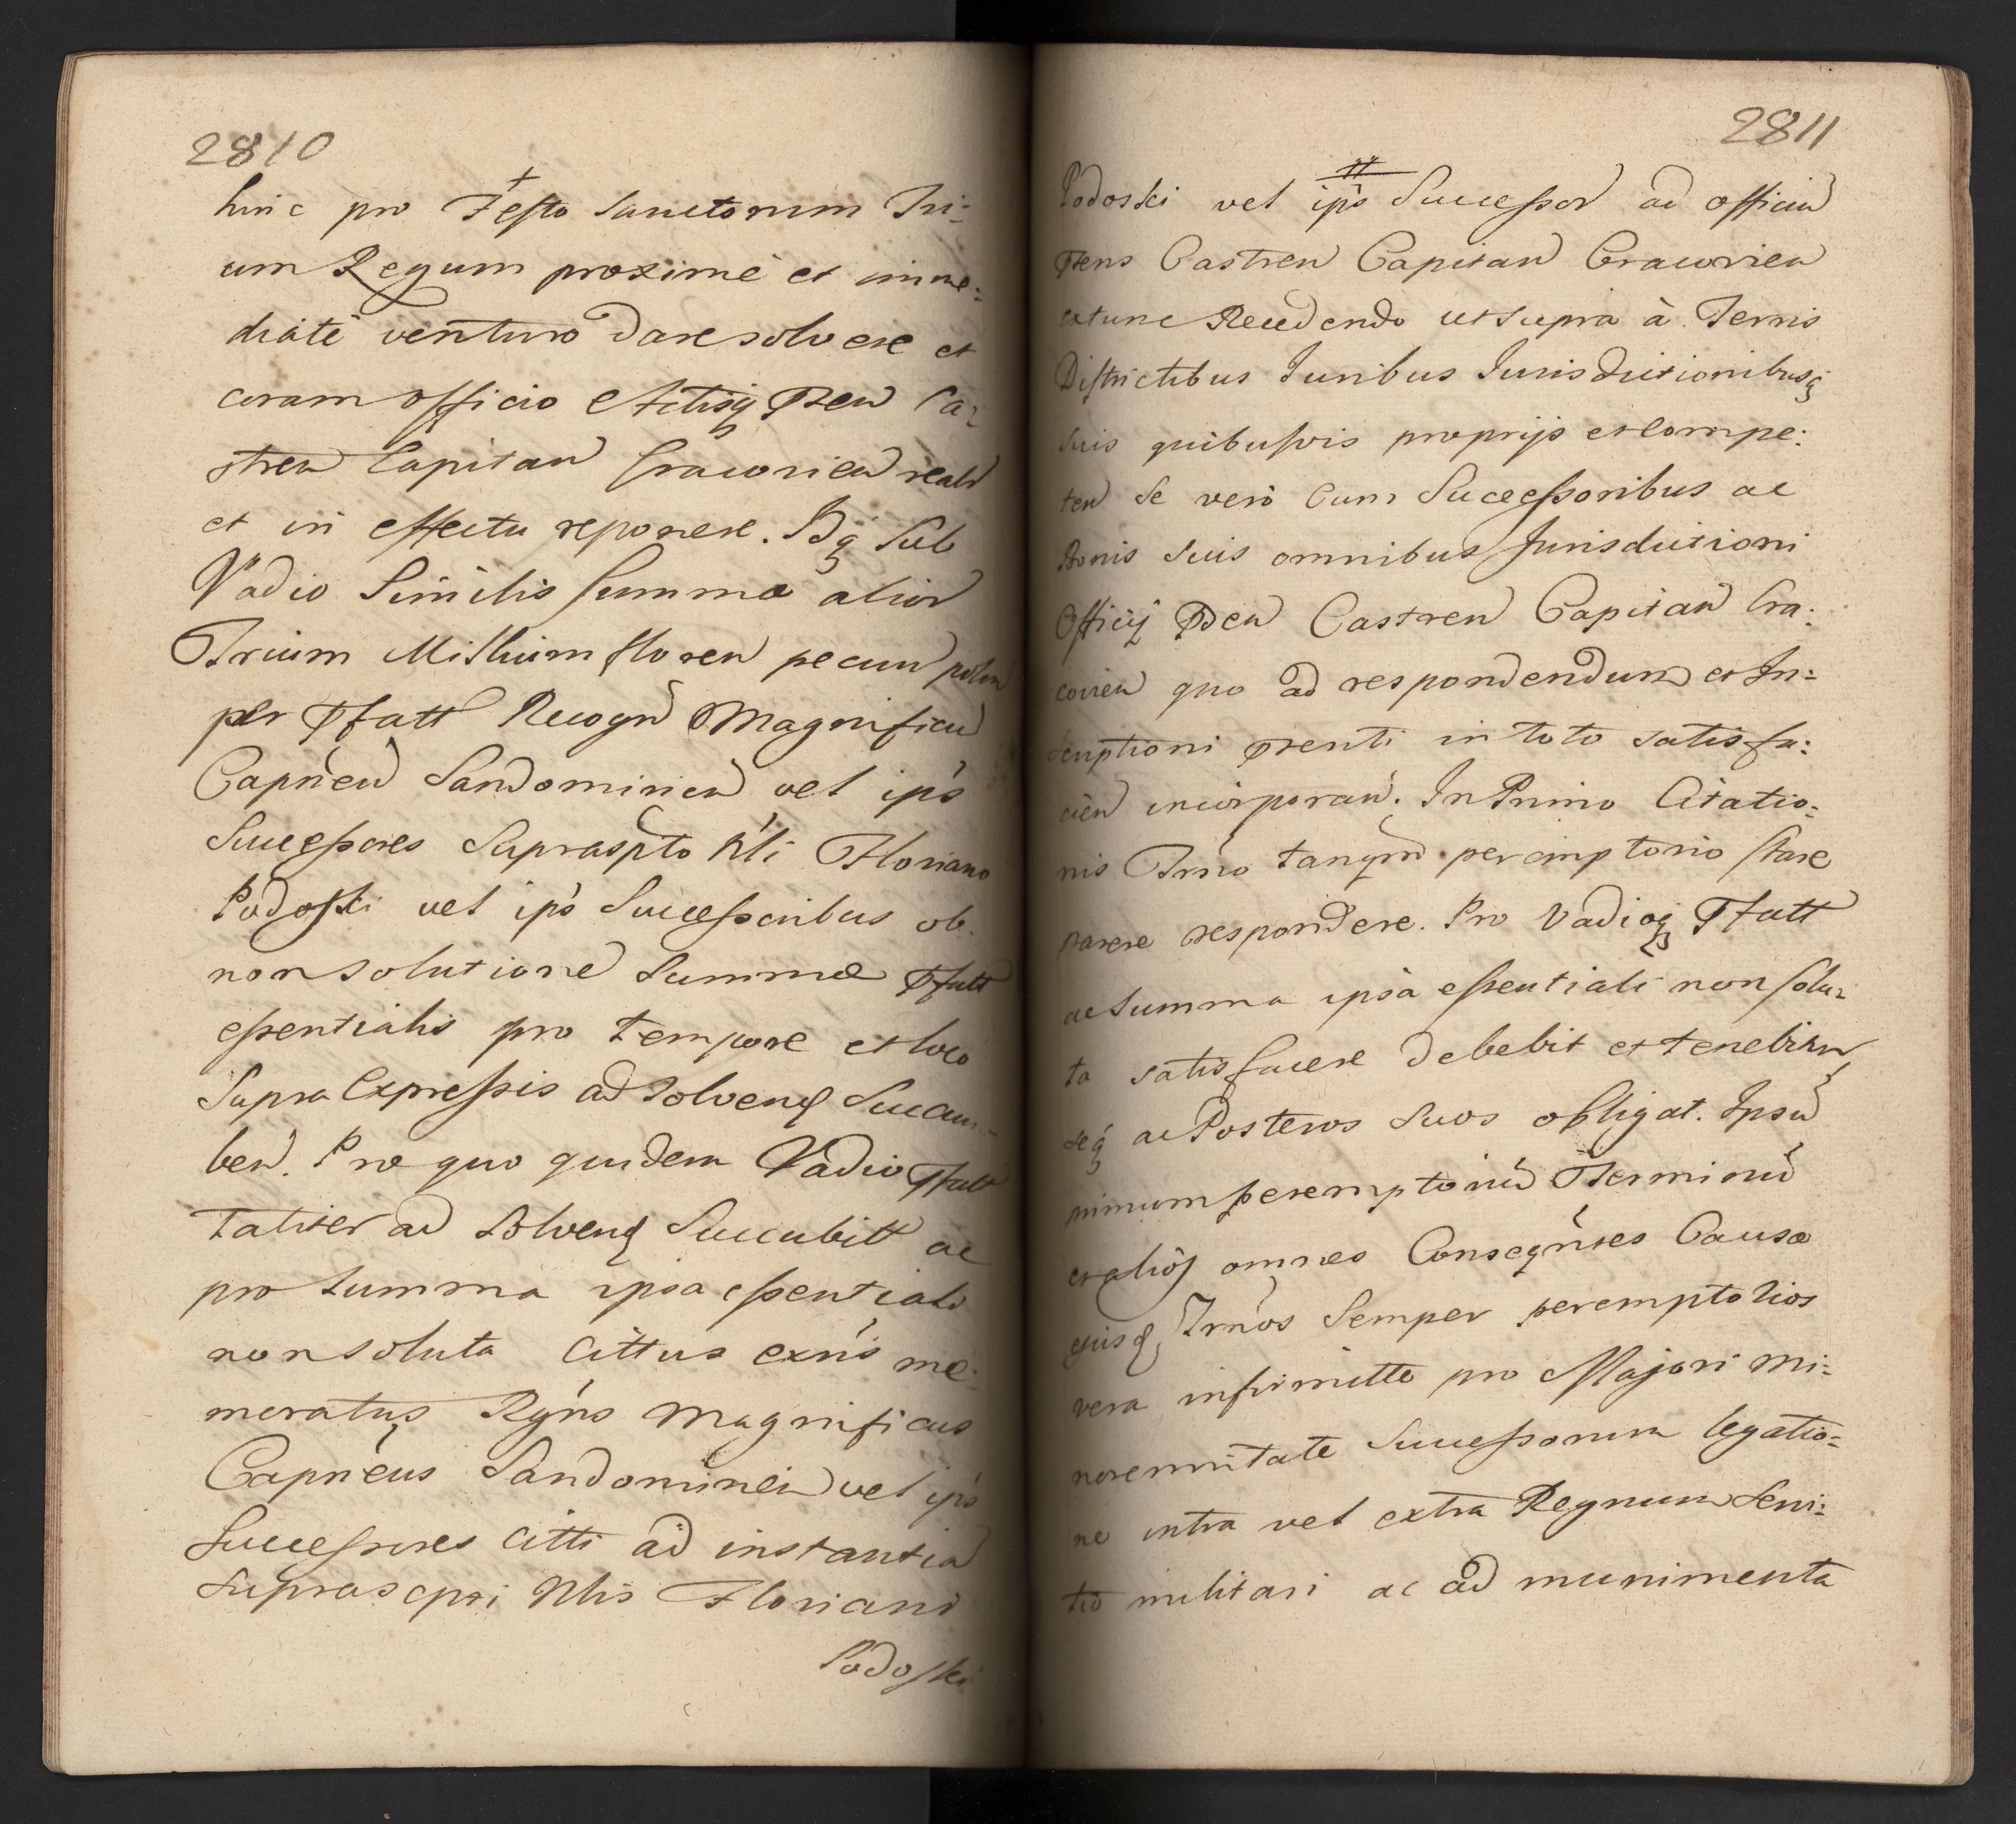 2810
hinc pro Festo Sanctorum Tri=
um Regum proximè et imme=
diatè venturo dare solvere et
coram officio Actisq pñten Ca=
stren Capitan Cracovien reale
et in effectu reponere. Idq Sub
Vadio Similis Summæ alior
Trium Millium floren pecun polon
per Pfatt Recogn Magnificu
Capńeu Sandomirien vel ip̀s
Successores Suprasp̃to Nli Floriano
Podoski vel ip̀s Successoribus ob
non solutione Summæ Pfatt
essentialis pro tempore et loco
Supra Expressis ad Solvend Succum=
ben. Pro quo quidem Vadio Pfatt
taliter ad Solvend Succubitt ac
pro Summa ipsa essentiali
non soluta Cittus exńs me=
moratus Rgńs Magnificus
Capńeus Sandomirien vel ip̀s
Successores Citti ad instantia
suprascpti Nlis Floriani
Podoski
2811
Podoski vel ip̀s Successor ad officiu
pñtens Castren Capitan Cracovien
extunc Recedendo ut supra à Terris
Districtibus Juribus Jurisdictionibusq
suis quibusvis proprijs et Compe=
ten Se verò Cum Successoribus ac
Bonis Suis omnibus Jurisdictioni
Officij pñten Castren Capitan Cra=
covien quo ad respondendum et In=
scriptioni prẽnti in toto satisfa=
cien incorporań. In Primo Citatio=
nis Trńo tanqm peremptorio stare
parere respondere. Pro Vadioq Pfatt
ac Summa ipsa essentiali non solu=
ta satisfacere debebit et tenebitur
seq ac Posteros Suos obligat. Ipsu
primum peremptoriu Terminu
et alios omnes Conseqńtes Causæ
ejusq Trńos Semper peremptorios
vera infirmitte pro Majori mi=
noremńtate Successorum legatio=
ne intra vel extra Regnum Servi=
tio militari ac ad munimenta